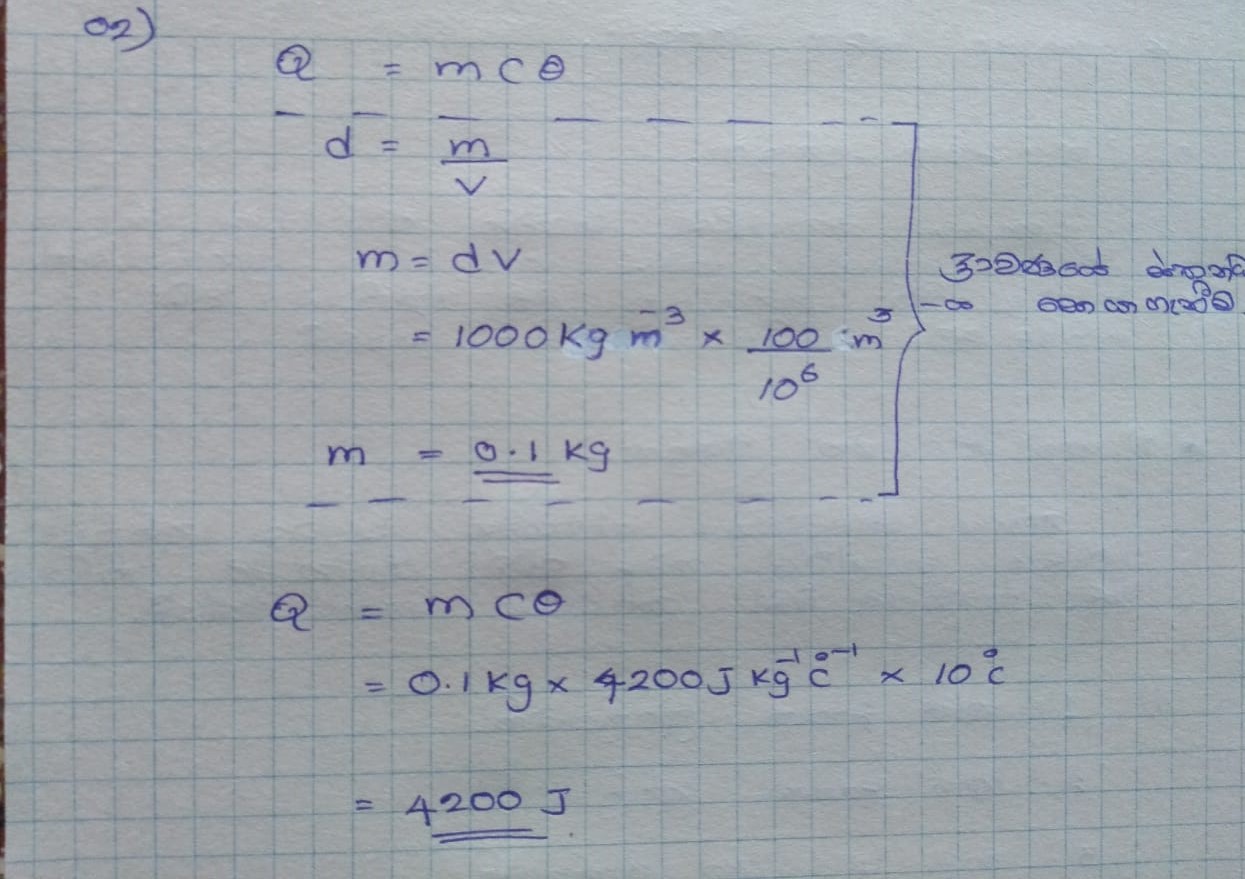 02)
Q = mcθ
d = m/V
m = dv
= 1000 Kg m⁻³ × 100/10⁶ m³
m = 0.1 kg
ද්‍රාවණයේ
සොයා ගැනීම
Q = mcθ
= 0.1 kg × 4200 J kg⁻¹ °C⁻¹ × 10 °C
= 4200 J